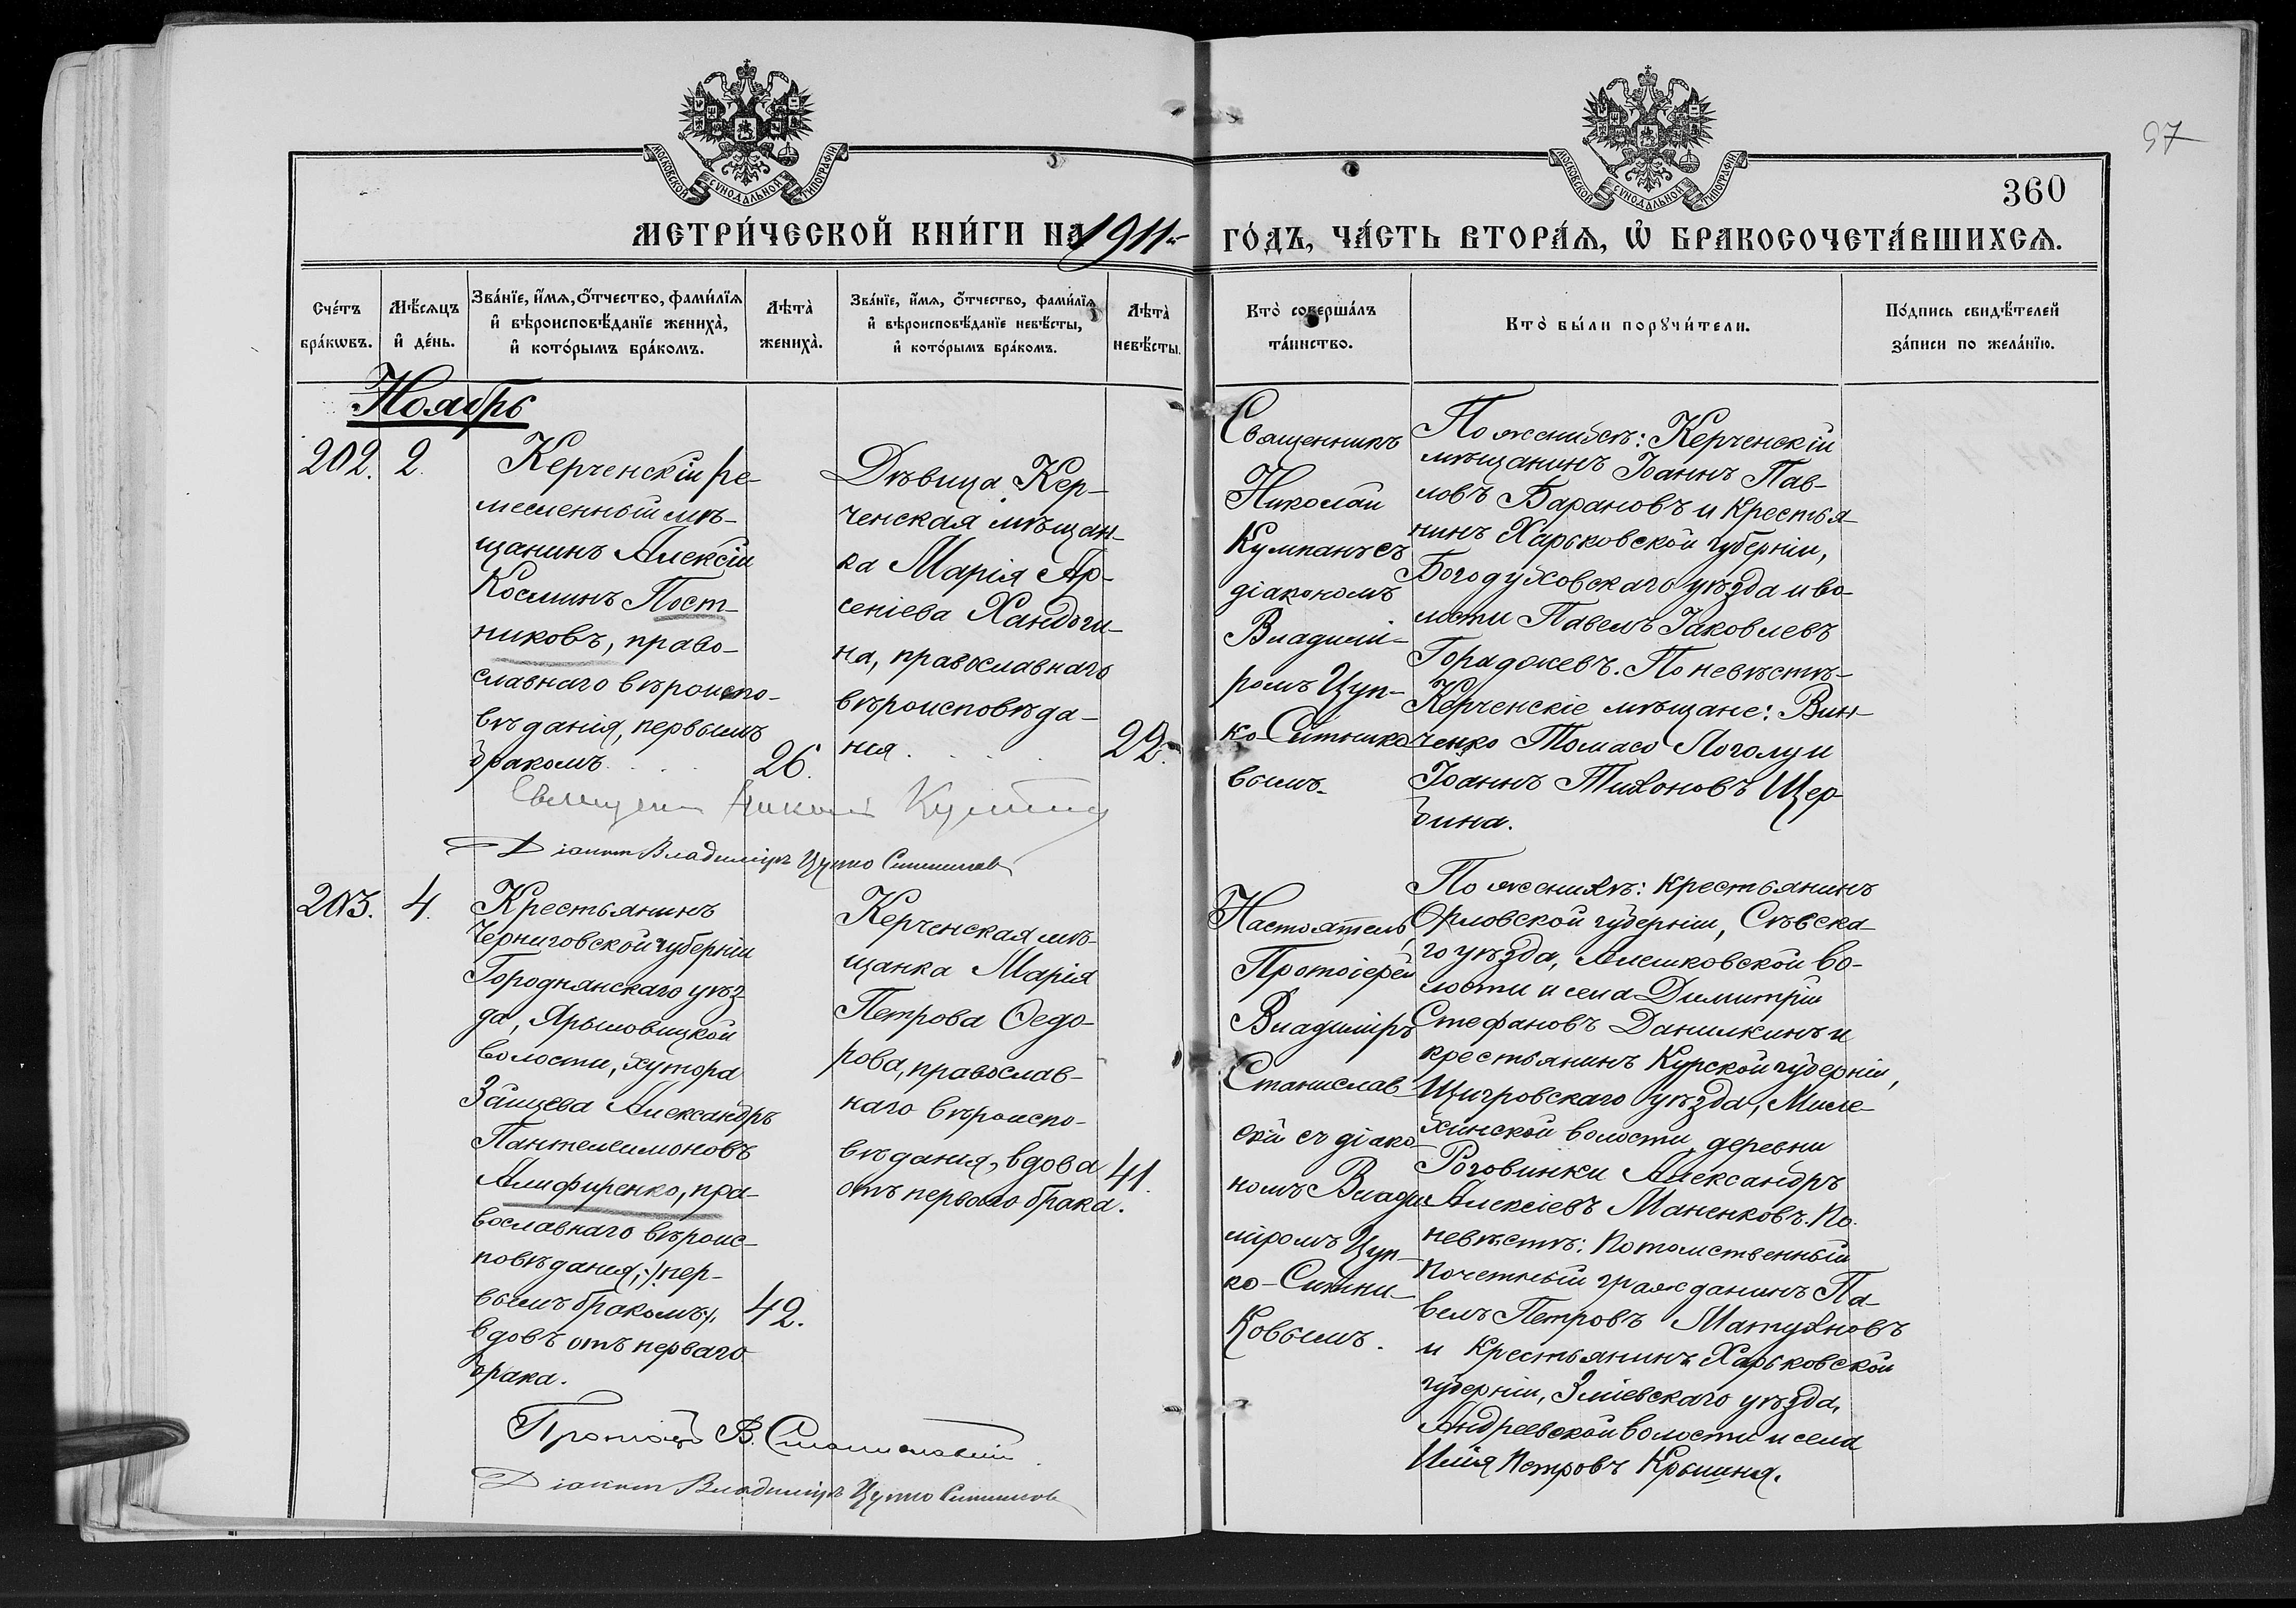 МОСКОВСКОЙ СѴНОДАЛЬНОЙ ТИПОГРАФІИ
МОСКОВСКОЙ СѴНОДАЛЬНОЙ ТИПОГРАФІИ
97
360
МЕТРИ́ЧЕСКОЙ КНИ́ГИ НА 1911й ГО́ДЪ, ЧА́СТЬ ВТОРА́Ѧ, Ѡ҆ БРАКОСОЧЕТА́ВШИХСѦ.
Сче́тъ
бра́кѡвъ.
Мѣ́сяцъ
и҆ де́нь.
Зва́нїе, и҆́мѧ, ѻ҆́тчество, фами́лїѧ
и҆ вѣроисповѣ́данїе жениха̀,
и҆ кото́рымъ бра́комъ.
Лѣ́та
жениха̀.
Зва́нїе, и҆́мѧ, ѻ҆́тчество, фами́лїѧ
и҆ вѣроисповѣ́данїе невѣ́сты,
и҆ кото́рымъ бра́комъ.
Лѣ́та
невѣ́сты.
Кто̀ соверша́лъ
та́инство.
Кто̀ бы́ли порꙋчи́тели.
По́дпись свидѣ́телей
за́писи по жела́нїю.
Ноябрь
202.
2.
Керченскій ре-
месленный мѣ-
щанинъ Алексій
Косминъ Пост-
никовъ, право-
славнаго вѣроиспо-
вѣданія, первымъ
бракомъ
26.
Дѣвица Кер-
ченская мѣщан-
ка Марія Ар-
сеніева Хандоги-
на, православнаго
вѣроисповѣда-
нія.
22.
Священникъ
Николай
Кумпанъ съ
діакономъ
Владимі-
ромъ Цуп-
ко-Ситнико
вымъ.
По женихѣ: Керченскій
мѣщанинъ Іоаннъ Пав-
ловъ Барановъ и крестья-
нинъ Харьковской губерніи,
Богодуховскаго уѣзда и во-
лости Павелъ Іаковлевъ
Гораджевъ. По невѣстѣ-
Керченскіе мѣщане: Вин-
ченцо Томасо Логолуи
Іоаннъ Тихоновъ Щер-
бина.
Священ Никол Кумпан
Діаконъ Владиміръ Цупко Ситников
203.
4.
Крестьянинъ
Черниговской губерніи
Городнянскаго уѣз-
да, Ярыловицкой
волости, хутора
Зайцева Александръ
Пантелеимоновъ
Алифиренко, пра-
вославнаго вѣроис-
повѣданія, пер-
вымъ бракомъ,
вдовъ отъ перваго
брака.
42.
Керченская мѣ-
щанка Марія
Петрова Ѳедо-
рова, православ-
наго вѣроиспо-
вѣданія, вдова
отъ перваго брака.
41.
Настоятель
Протоіерей
Владиміръ
Станислав
скій съ діако
номъ Влади
міромъ Цуп-
ко-Ситни-
ковымъ.
По женихѣ: крестьянинъ
Орловской губерніи, Сѣвска-
го уѣзда, Алешковской во-
лости и села Димитрій
Стефановъ Данилкинъ и
крестьянинъ Курской губерніи,
Щигровскаго уѣзда, Миле-
хинской волости деревни
Роговинки Александръ
Алексіевъ Маненковъ. По
невѣстѣ: потомственный
почетный гражданинъ Па-
велъ Петровъ Матухновъ
и крестьянинъ Харьковской
губерніи, Зміевскаго уѣзда,
Андреевской волости и села
Илія Петровъ Крышня.
Протоіер В. Станиславскій
Діаконъ Владиміръ Цупко Ситников